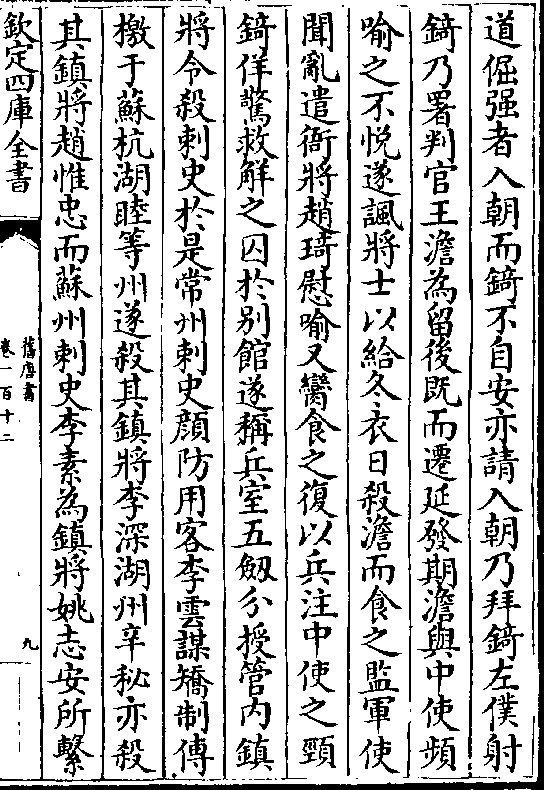 道倔强者入朝而錡不自安亦請入朝乃拜錡左僕射
錡乃署判官王澹為留後既而遷延發期澹與中使頻
喻之不悦遂諷將士以給冬衣日殺澹而食之監軍使
聞亂遣衙將趙琦慰喻又臠食之復以兵注中使之頸
錡佯驚救解之囚於别館遂稱兵室五劔分授管内鎮
將令殺刺史於是常州刺史顔防用客李雲謀矯制傳
檄于蘇杭湖睦等州遂殺其鎮將李深湖州辛秘亦殺
其鎮將趙惟忠而蘇州刺史李素為鎮將姚志安所繫
欽定四庫全書
舊唐書
卷一百十二
九